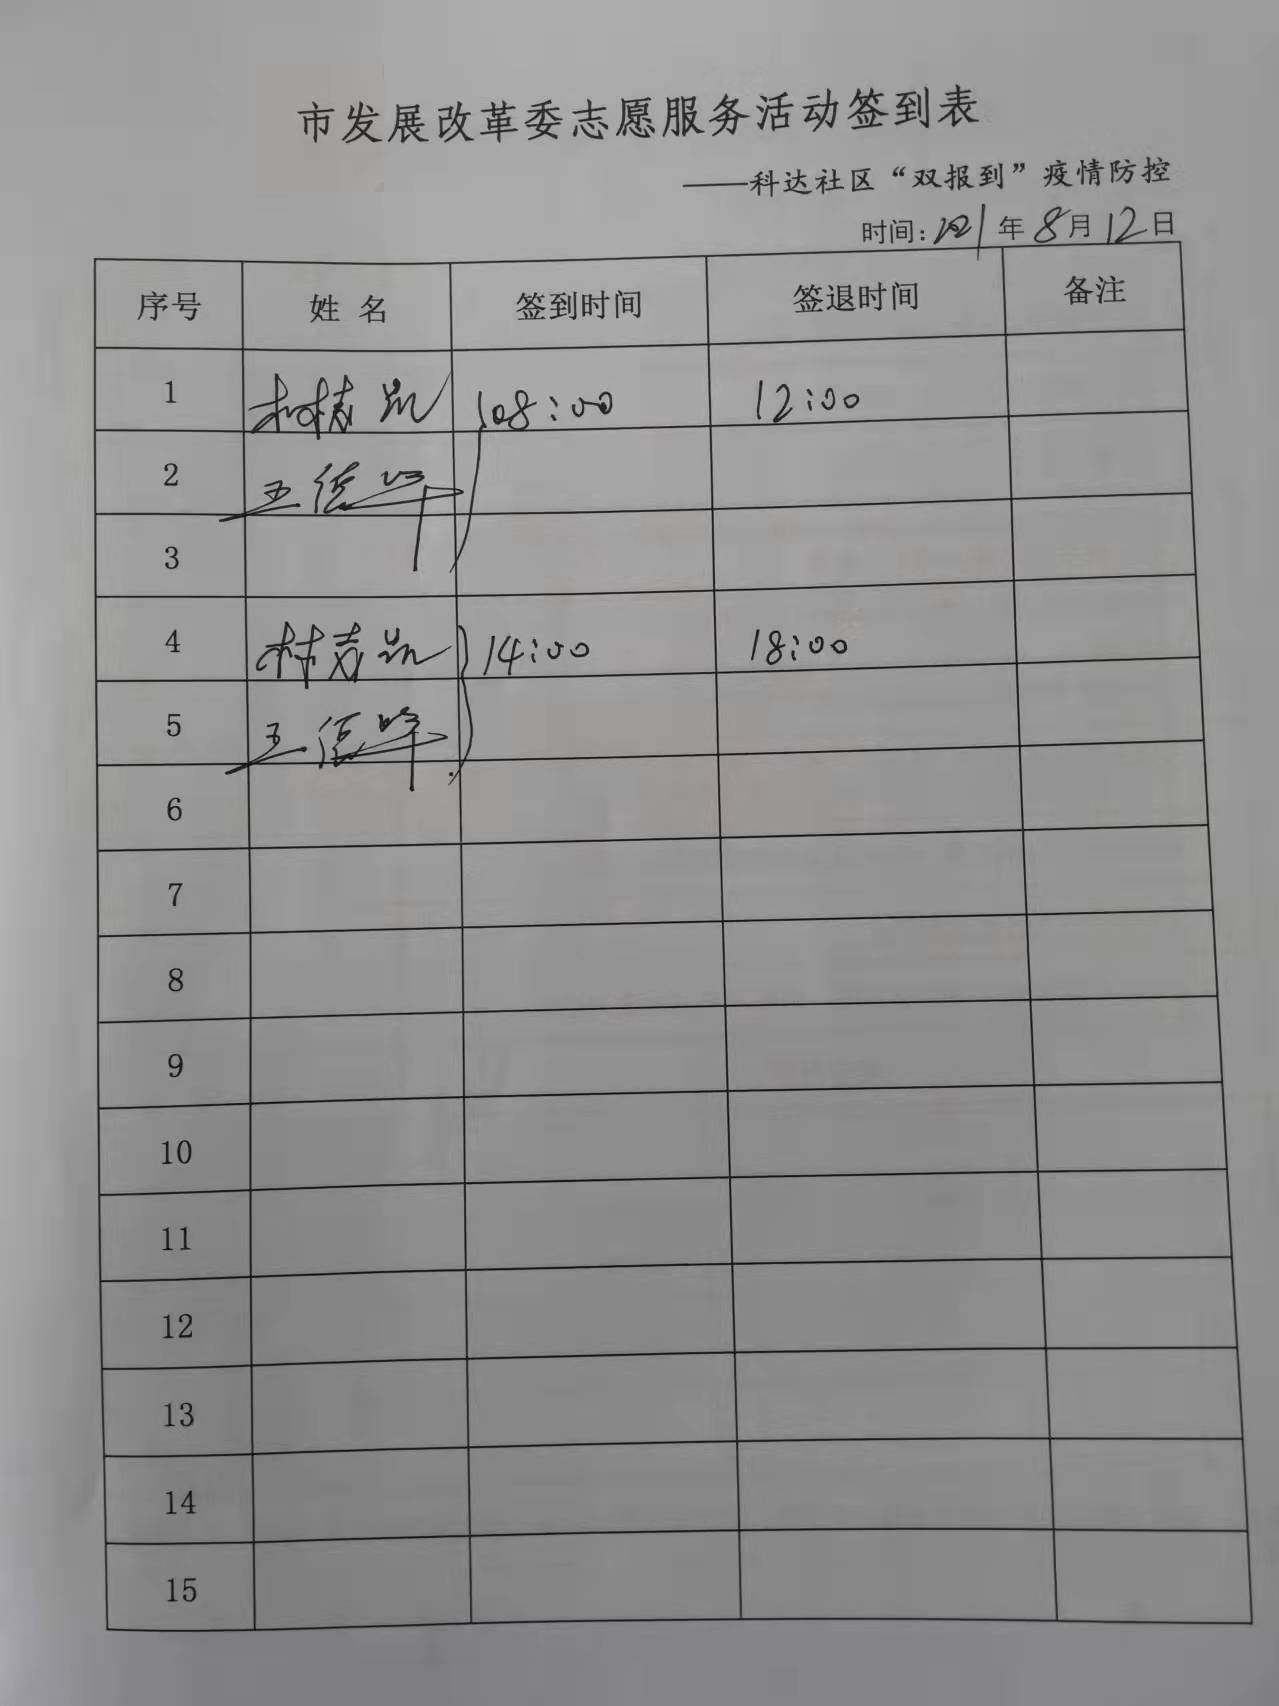 市发展改革委志愿服务活动签到表
——科达社区“双报到”疫情防控
时间：2021年8月12日
序号 姓名 签到时间 签退时间 备注
1 08:00 12:00
2 王德峰
3
4 14:00 18:00
5 王德峰
6
7
8
9
10
11
12
13
14
15